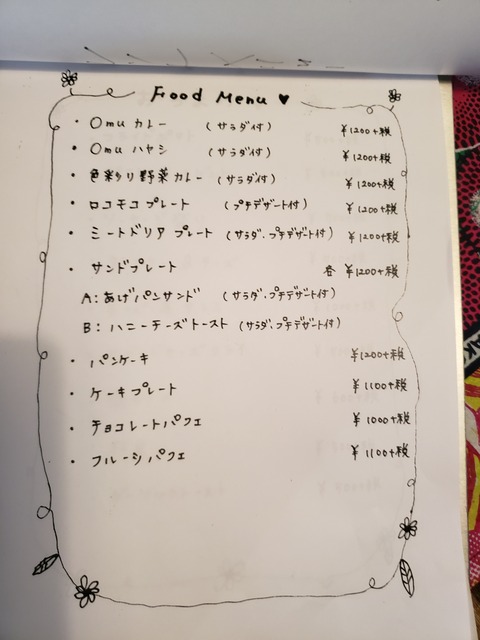 Food Menu ♥
・Omu カレー (サラダ付) ¥1200+税
・Omu ハヤシ (サラダ付) ¥1200+税
・色彩り野菜カレー (サラダ付) ¥1200+税
・ロコモコプレート (プチデザート付) ¥1200+税
・ミートドリアプレート (サラダ・プチデザート付) ¥1200+税
・サンドプレート 各 ¥1200+税
A:あげパンサンド (サラダ・プチデザート付)
B:ハニーチーズトースト (サラダ・プチデザート付)
・パンケーキ ¥1200+税
・ケーキプレート ¥1100+税
・チョコレートパフェ ¥1000+税
・フルーツパフェ ¥1100+税